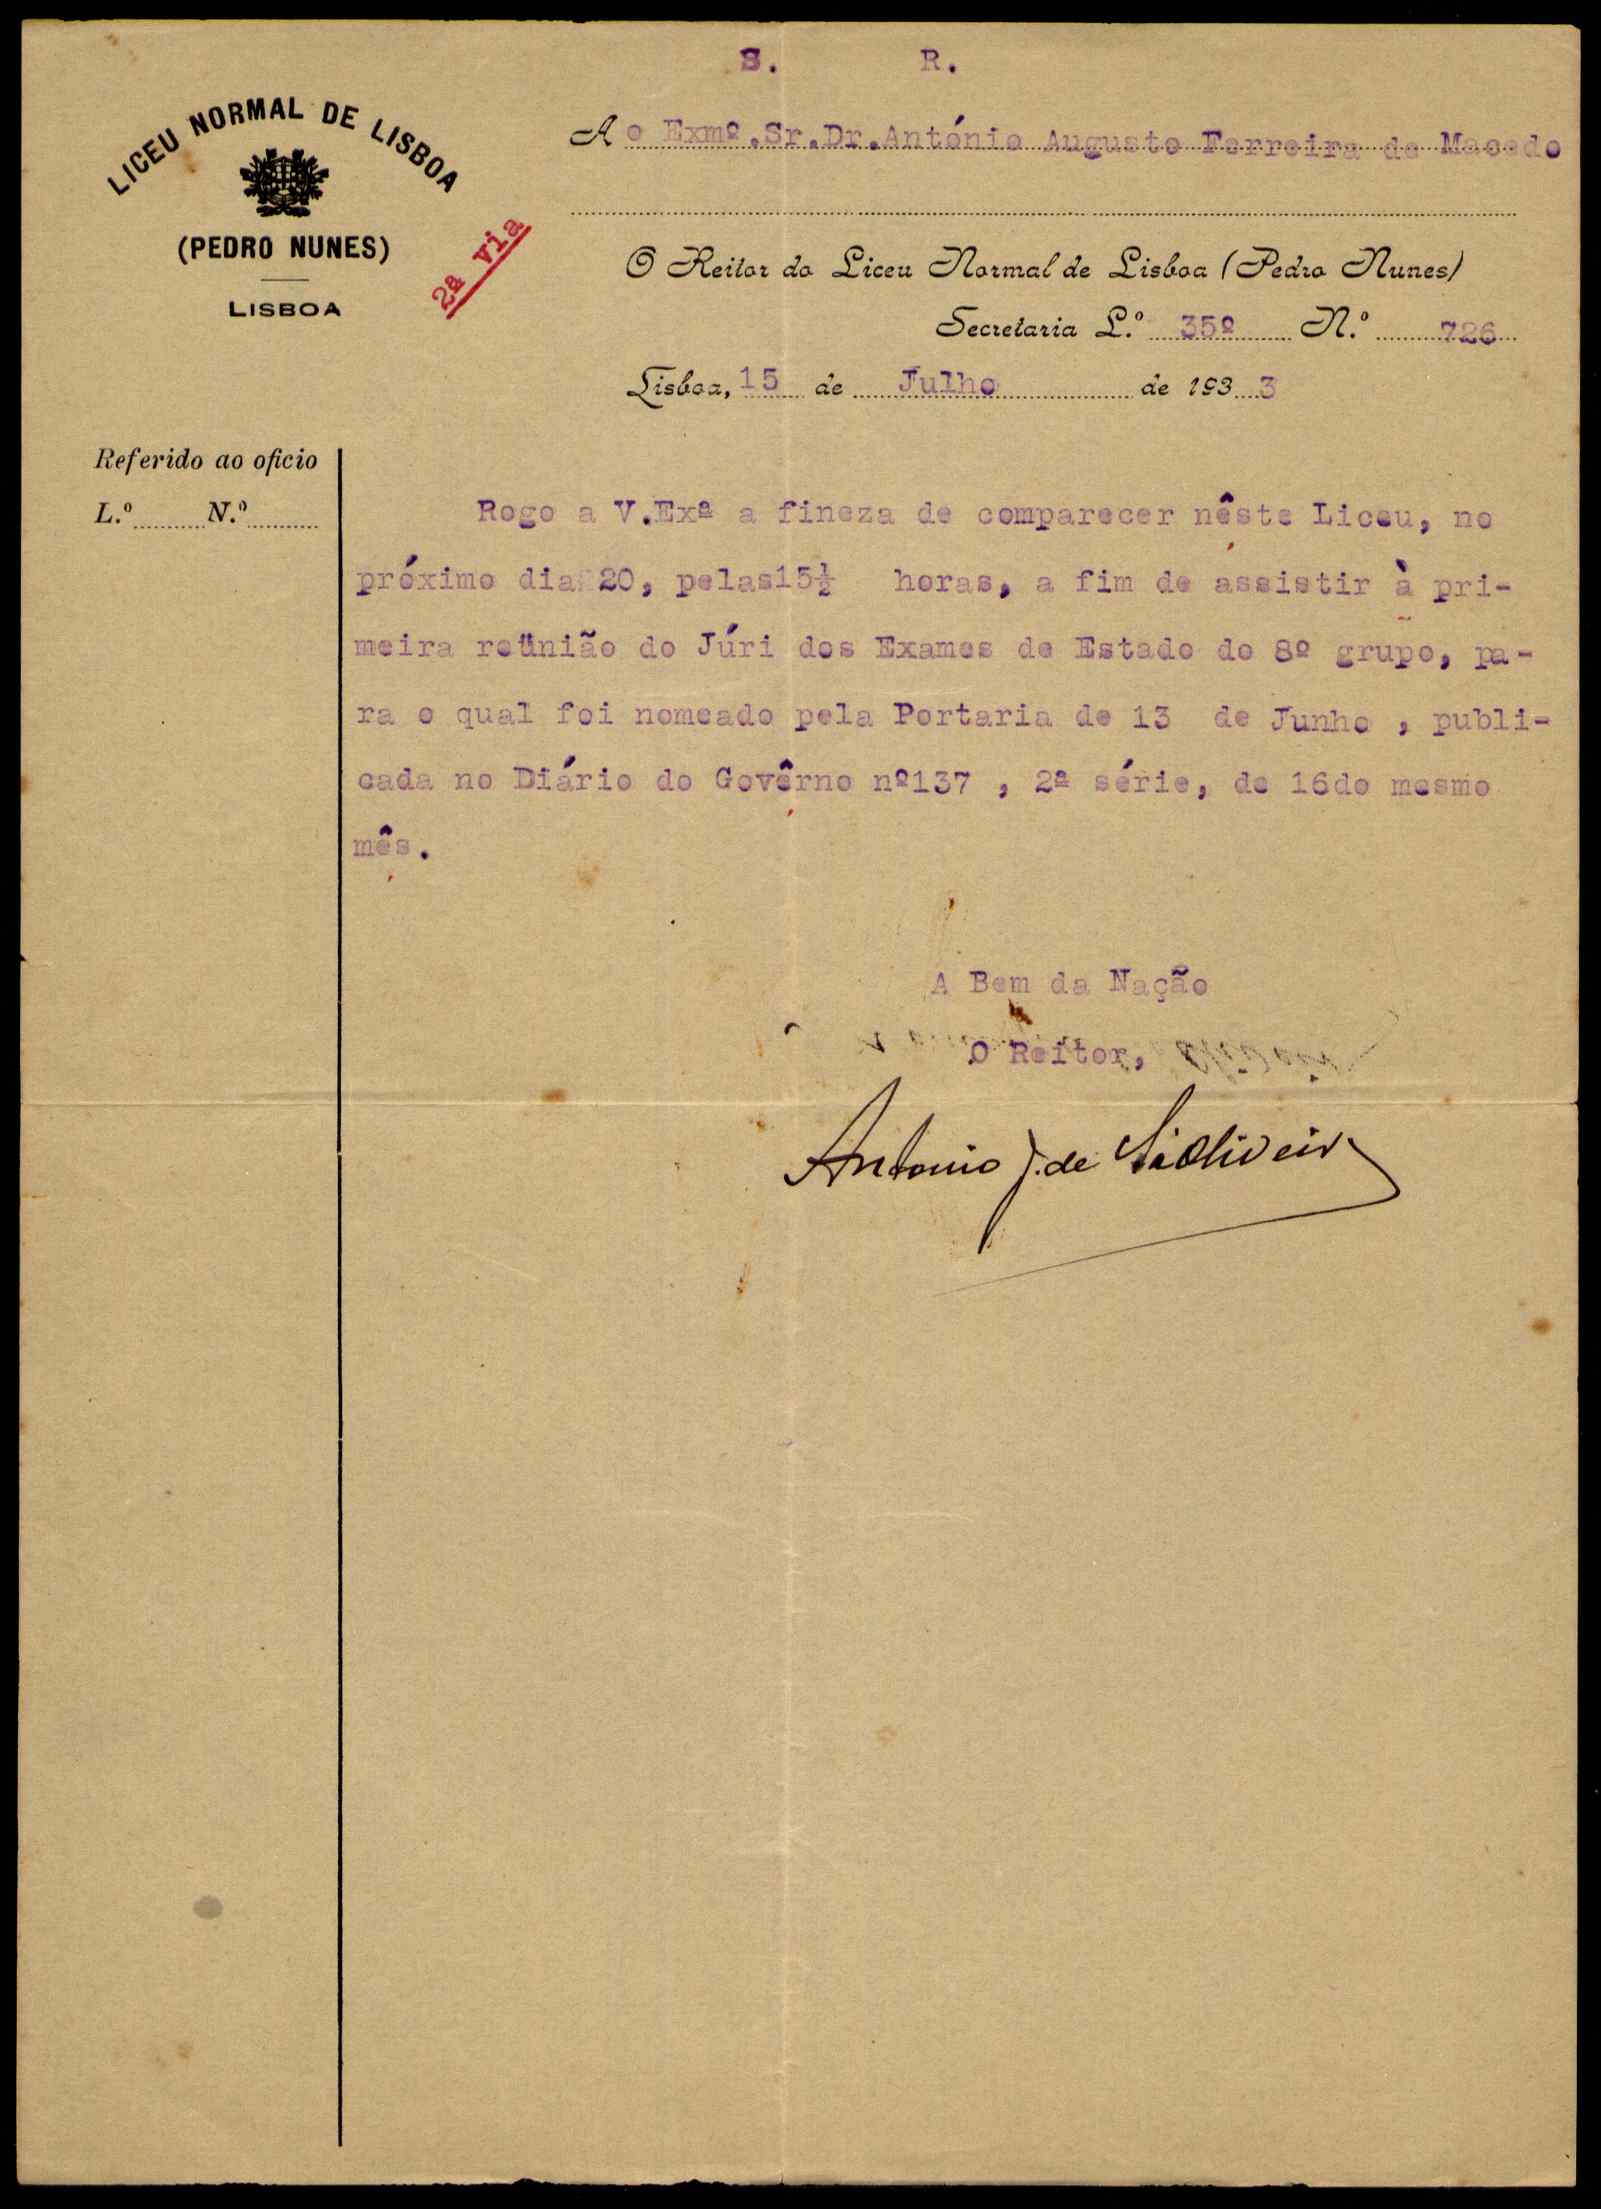 S. R.
LICEU NORMAL DE LISBOA
(PEDRO NUNES)
LISBOA
2ª via
Ao Exmº.Sr.Dr.António Augusto Ferreira de Macedo
O Reitor do Liceu Normal de Lisboa (Pedro Nunes)
Secretaria L.º 35º N.º 726
Lisboa, 15 de Julho de 1933
Referido ao oficio
L.º N.º
Rogo a V.Exª a fineza de comparecer nêste Liceu, no
próximo dia 20, pelas15½ horas, a fim de assistir à pri-
meira reünião do Júri dos Exames de Estado do 8º grupo, pa-
ra o qual foi nomeado pela Portaria de 13 de Junho , publi-
cada no Diário do Govêrno nº137 , 2ª série, de 16do mesmo
mês.
A Bem da Nação
O Reitor,
Antonio J. de Sá Oliveira